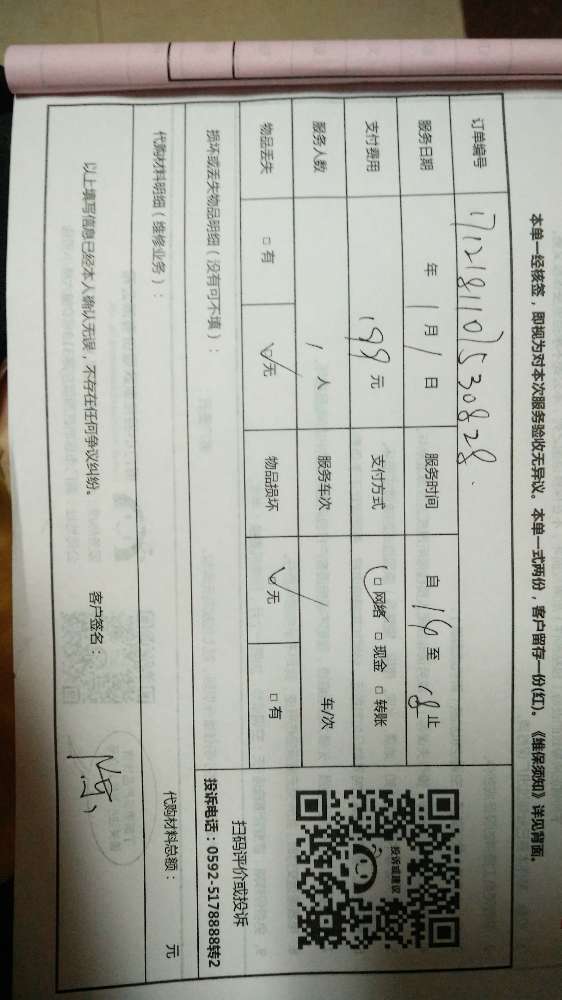 本单一经核签，即视为对本次服务验收无异议。本单一式两份，客户留存一份(红)。《维保须知》详见背面。
订单编号 1712181107530828
服务日期 年 1 月 1 日 服务时间 自 16 至 18 止
支付费用 199 元 支付方式 □ 网络 □ 现金 □ 转账
服务人数 1 人 服务车次 / 车/次
物品丢失 □ 有 ☑ 无 物品损坏 ☑ 无 □ 有
投诉或建议
扫码评价或投诉
投诉电话：0592-5178888转2
损坏或丢失物品明细（没有可不填）：
代购材料明细（维修业务）：
代购材料总额： 元
以上填写信息已经本人确认无误，不存在任何争议纠纷。
客户签名：